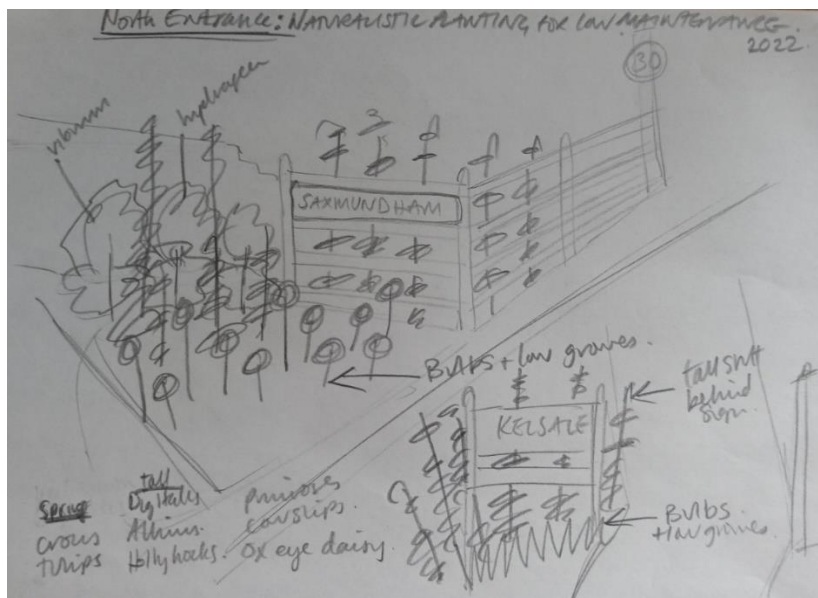 North Entrance: Naturalistic Planting for Low Maintenance.
2022.
30
viburnum
hydrangea
SAXMUNDHAM
Bulbs + low growes.
tall stuff
behind
sign.
KELSALE
Bulbs
+ low growes.
Spring
Crocus
Tulips
tall
Digitalis
Alliums.
Hollyhocks.
Primroses
cowslips.
Ox eye daisy.